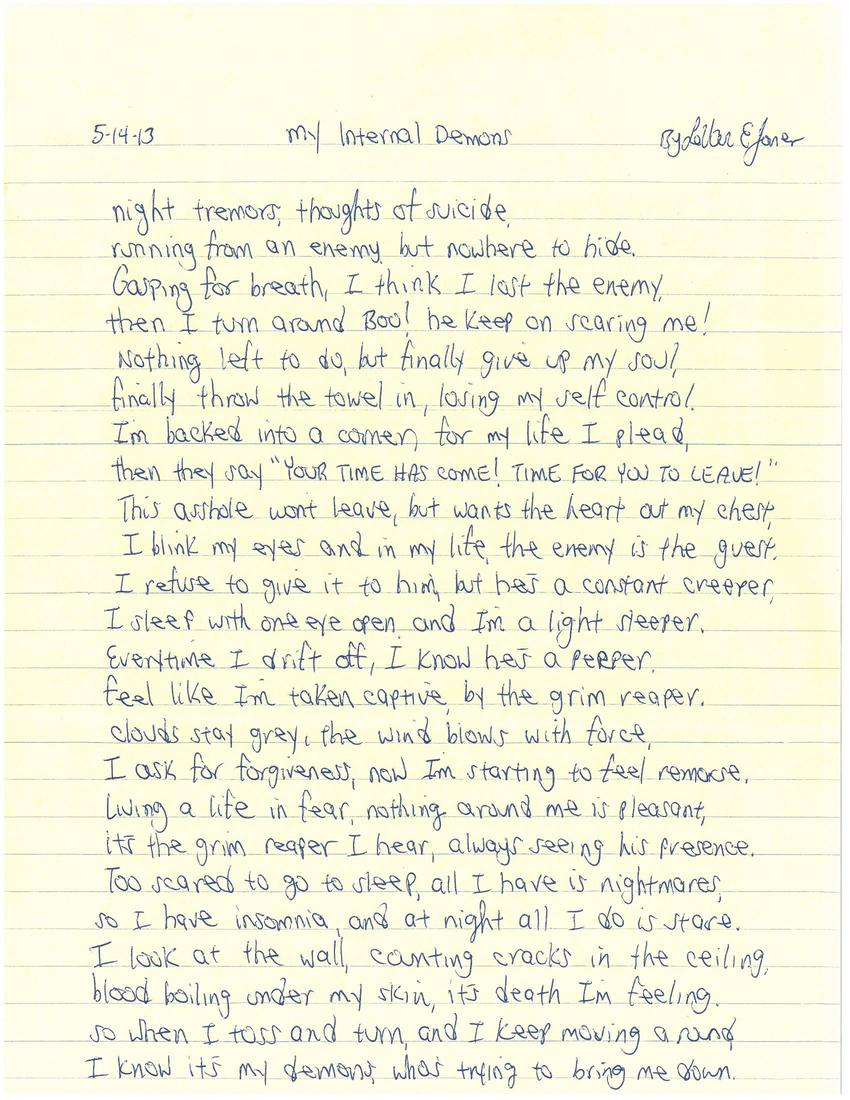 5-14-13 My Internal Demons By E Jones
night tremors, thoughts of suicide,
running from an enemy but nowhere to hide.
Gasping for breath, I think I lost the enemy,
then I turn around Boo! he keep on scaring me!
Nothing left to do, but finally give up my soul,
finally throw the towel in, losing my self control.
I'm backed into a corner, for my life I plead,
then they say "YOUR TIME HAS COME! TIME FOR YOU TO LEAVE!"
This asshole wont leave, but wants the heart out my chest,
I blink my eyes and in my life, the enemy is the guest.
I refuse to give it to him, but he's a constant creeper,
I sleep with one eye open and I'm a light sleeper.
Everytime I drift off, I know he's a peeper.
feel like I'm taken captive, by the grim reaper.
clouds stay grey, the wind blows with force,
I ask for forgiveness, now I'm starting to feel remorse.
Living a life in fear, nothing around me is pleasant,
it's the grim reaper I hear, always seeing his presence.
Too scared to go to sleep, all I have is nightmares,
so I have insomnia, and at night all I do is stare.
I look at the wall, counting cracks in the ceiling,
blood boiling under my skin, it's death I'm feeling.
so when I toss and turn, and I keep moving around,
I know it's my demons, whos trying to bring me down.